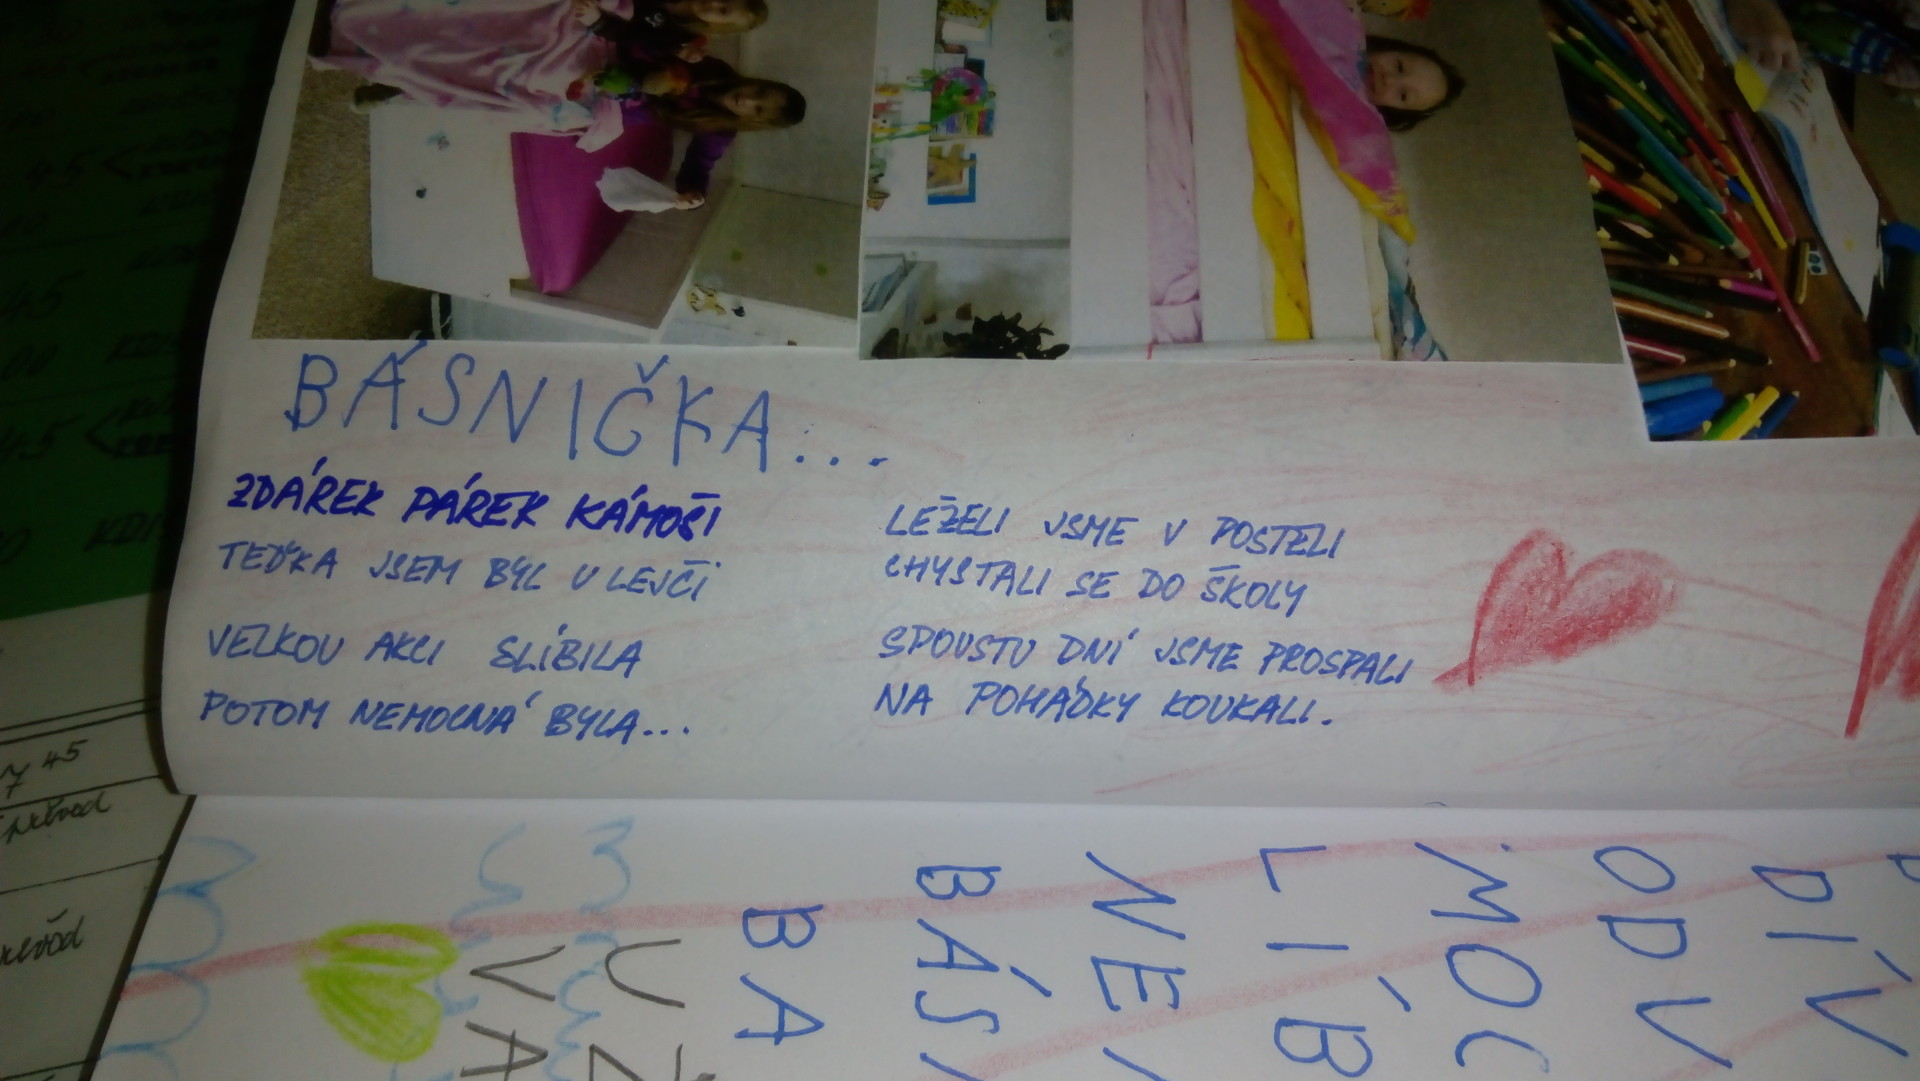 BÁSNIČKA...
ZDÁREK PÁREK KÁMOŠI
TEĎKA JSEM BYL U LEJČI
VELKOU AKCI SLÍBILA
POTOM NEMOCNÁ BYLA...
LEŽELI JSME V POSTELI
CHYSTALI SE DO ŠKOLY
SPOUSTU DNÍ JSME PROSPALI
NA POHÁDKY KOUKALI.
45
převod
DÍV
ODV
MOC
LÍB
NE
BÁS
BA
UŽ
VA